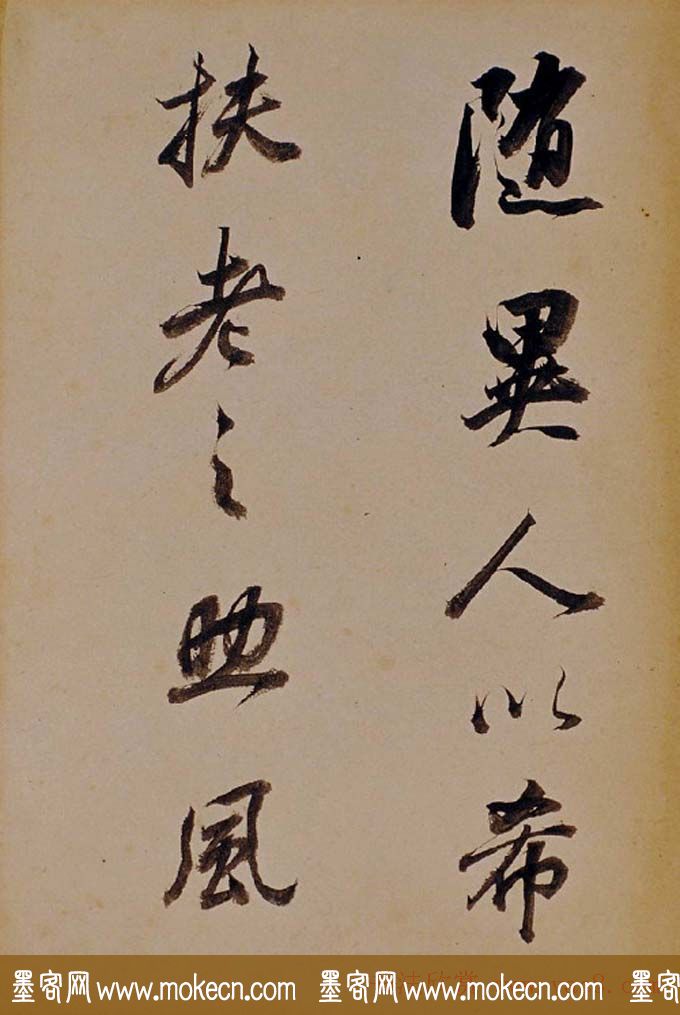 随異人以希
扶老之助風
墨客网 www.mokecn.com 墨客网 www.mokecn.com